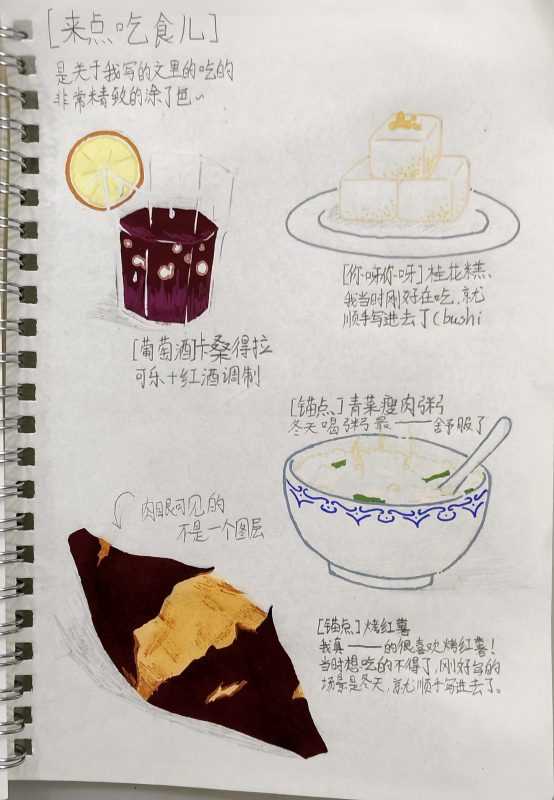 [来点吃食儿]
是关于我写的文里的吃的
非常精致的涂了色~
[你呀你呀]桂花糕、
我当时刚好在吃,就
顺手写进去了(bushi
[葡萄酒]卡桑得拉
可乐+红酒调制
[锚点、]青菜瘦肉粥
冬天喝粥最——舒服了
肉眼可见的
不是一个图层
[锚点]烤红薯
我真——的很喜欢烤红薯!
当时想吃的不得了,刚好写的
场景是冬天,就顺手写进去了。